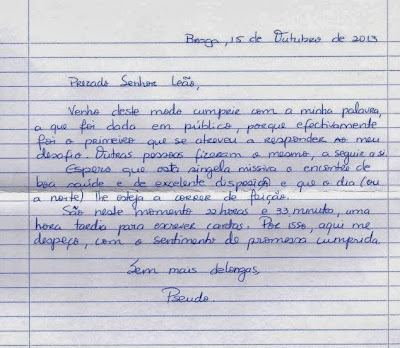 Braga, 15 de Outubro de 2013
Prezado Senhor Leão,
Venho deste modo cumprir com a minha palavra,
a que foi dada em público, porque efectivamente
foi o primeiro que se atreveu a responder ao meu
desafio. Outras pessoas fizeram o mesmo, a seguir a si.
Espero que esta singela missiva o encontre de
boa saúde e de excelente disposição e que o dia (ou
a noite) lhe esteja a correr de feição.
São neste momento 22 horas e 33 minutos, uma
hora tardia para escrever cartas. Por isso, aqui me
despeço, com o sentimento de promessa cumprida.
Sem mais delongas,
Pseudo.